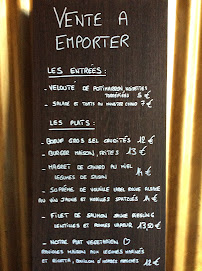 VENTE A
EMPORTER
LES ENTRÉES:
- VELOUTÉ DE POTIMARRON, NOISETTES
TORRÉFIÉES 5 €
- SALADE ET TARTE AU MUNSTER CHAUD 7 €
LES PLATS:
- BOEUF GROS SEL CRUDITÉS 12 €
- BURGER MAISON, FRITES 13 €
- MAGRET DE CANARD AU MIEL
LEGUMES DE SAISON 14 €
- SUPRÊME DE VOLAILLE LABEL ROUGE ALSACE
AU VIN JAUNE ET MORILLES SPATZLES 14 €
- FILET DE SAUMON SAUCE RIESLING
LENTILLES ET POMMES VAPEUR 13,50 €
- NOTRE PLAT VEGETARIEN ♡
MAISON AUX LEGUMES MARINÉS
ET RICOTTA, BOUILLON D'HERBES 12 €